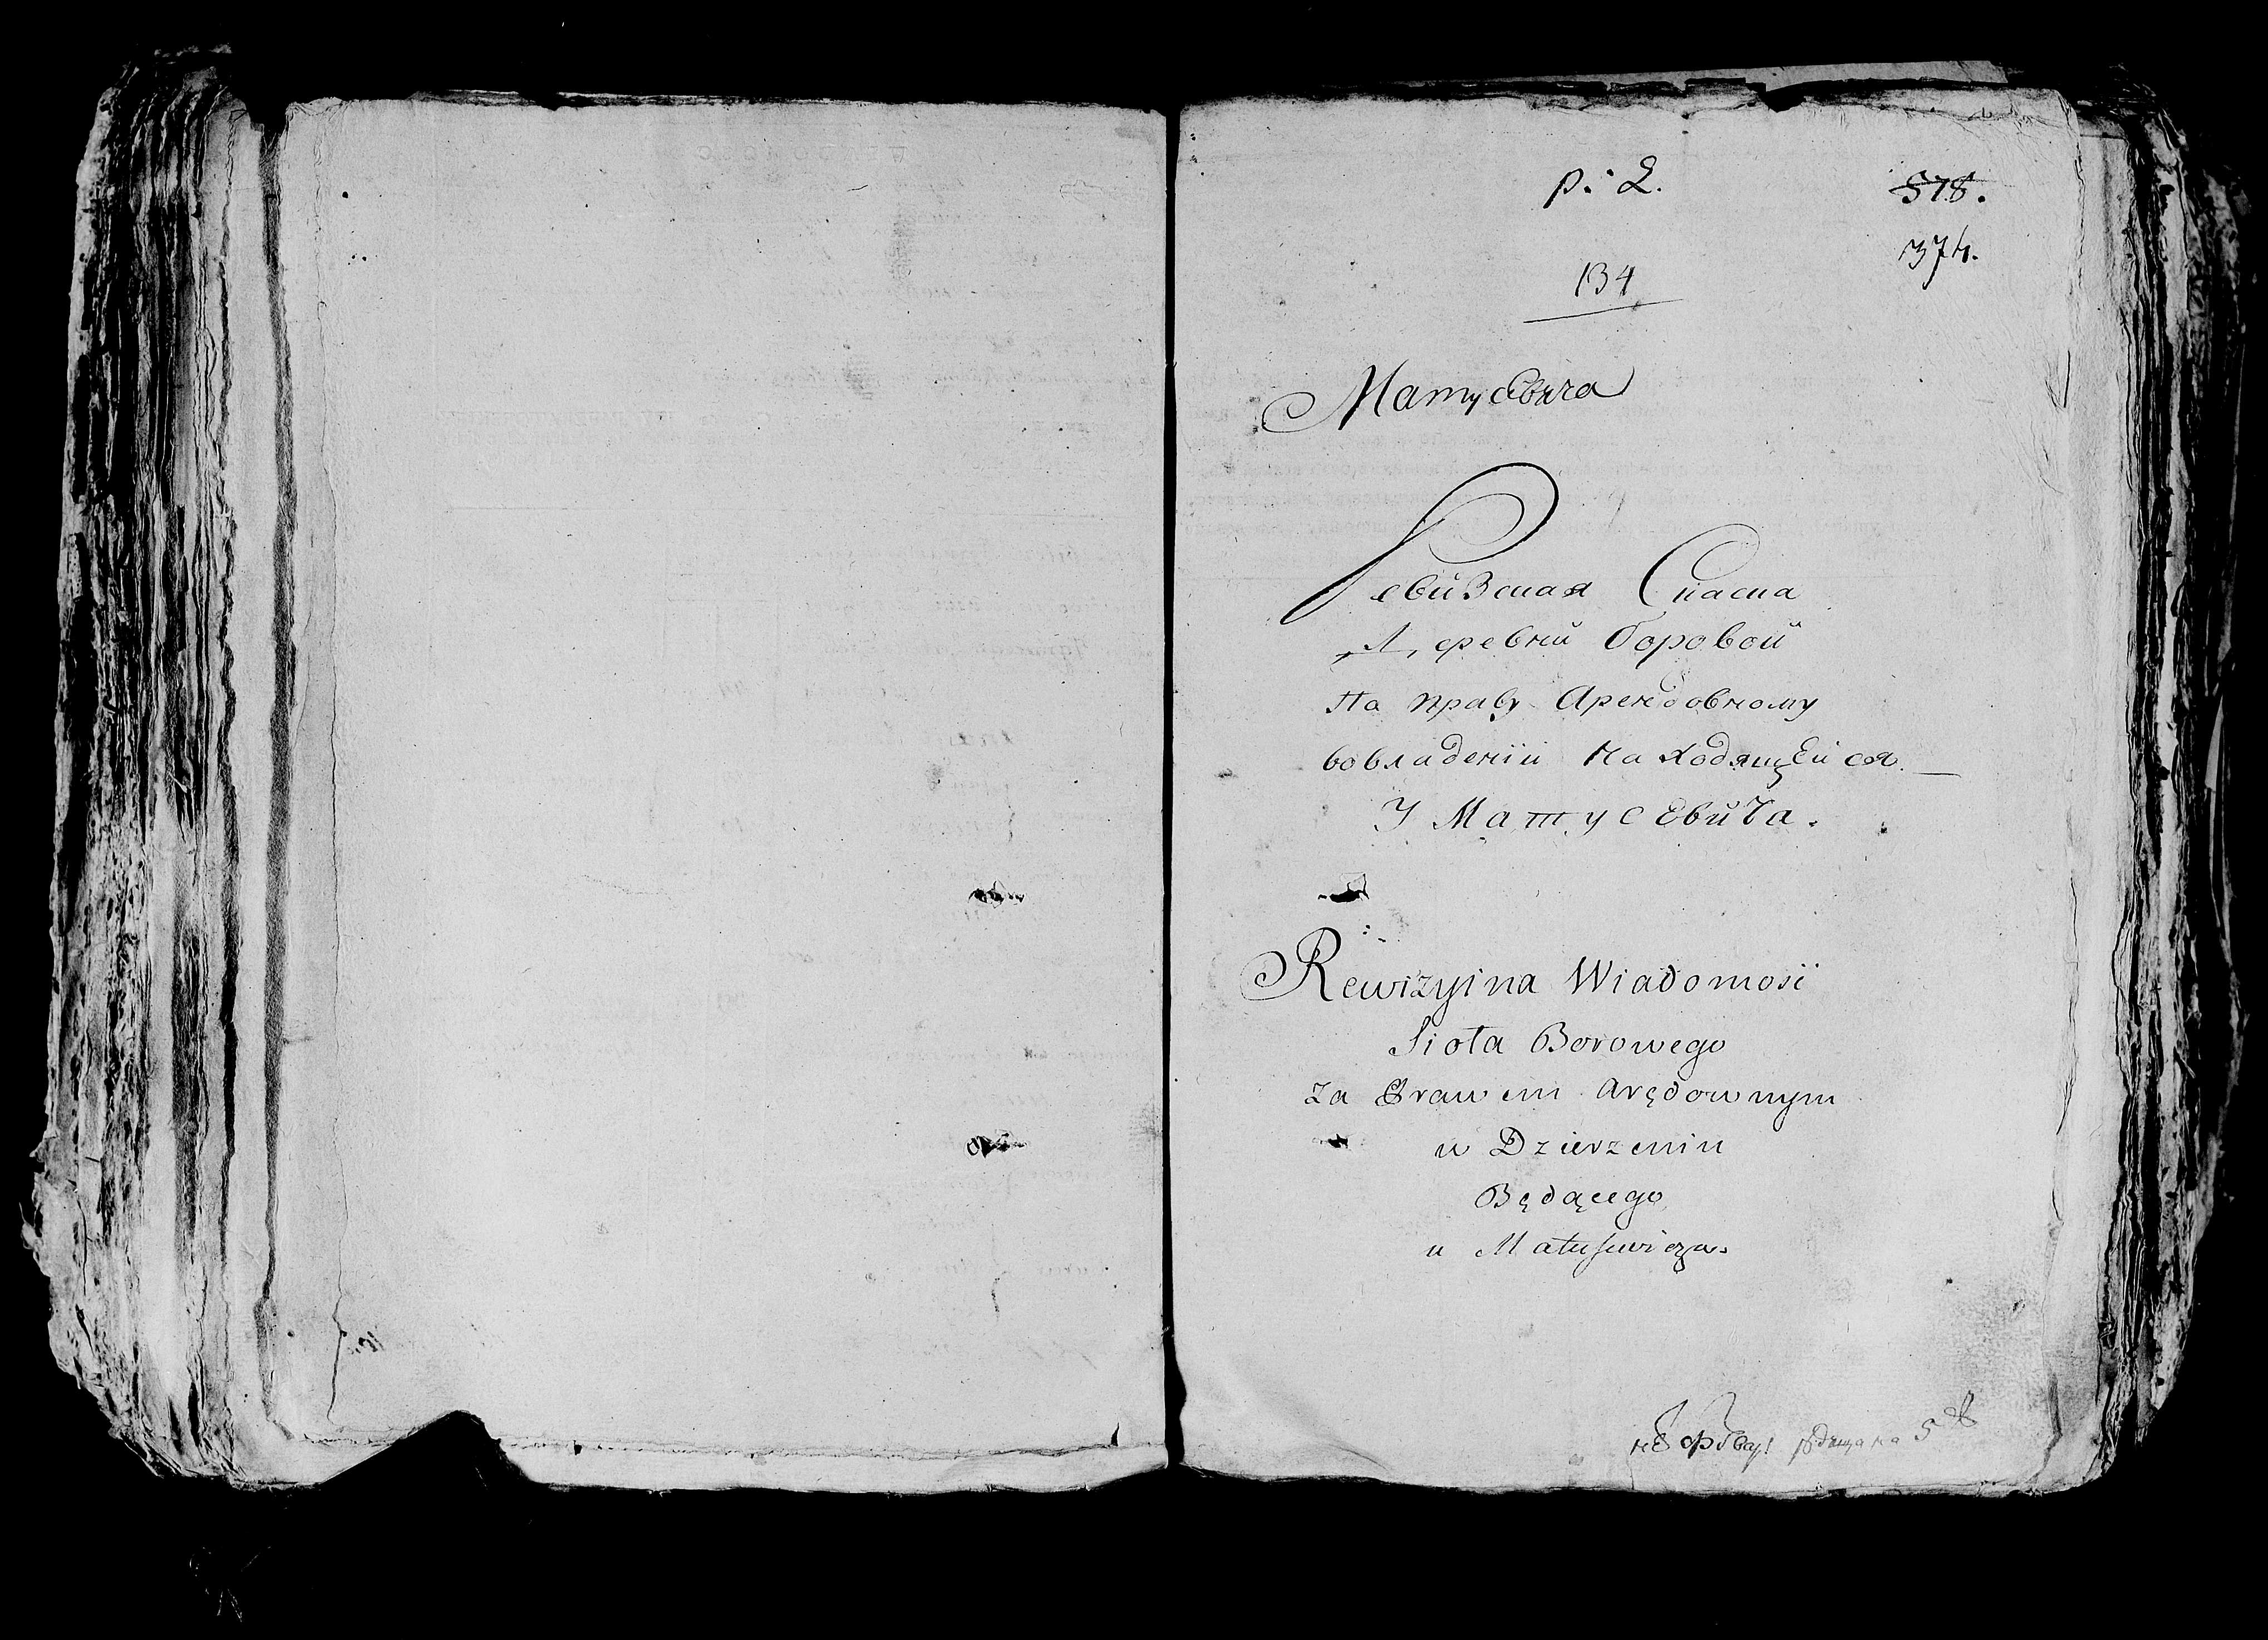 р. 2.
578.
374.
134
Матусевича
Ревизская Спаска
Деревни боровой
На праву Арендовному
во владении Находящейся
У Матусевича.
Rewizyina Wiadomość
Sioła Borowego
za Prawem Arędownym
w Dzierzeniu
Będącego
u Matusewicza.